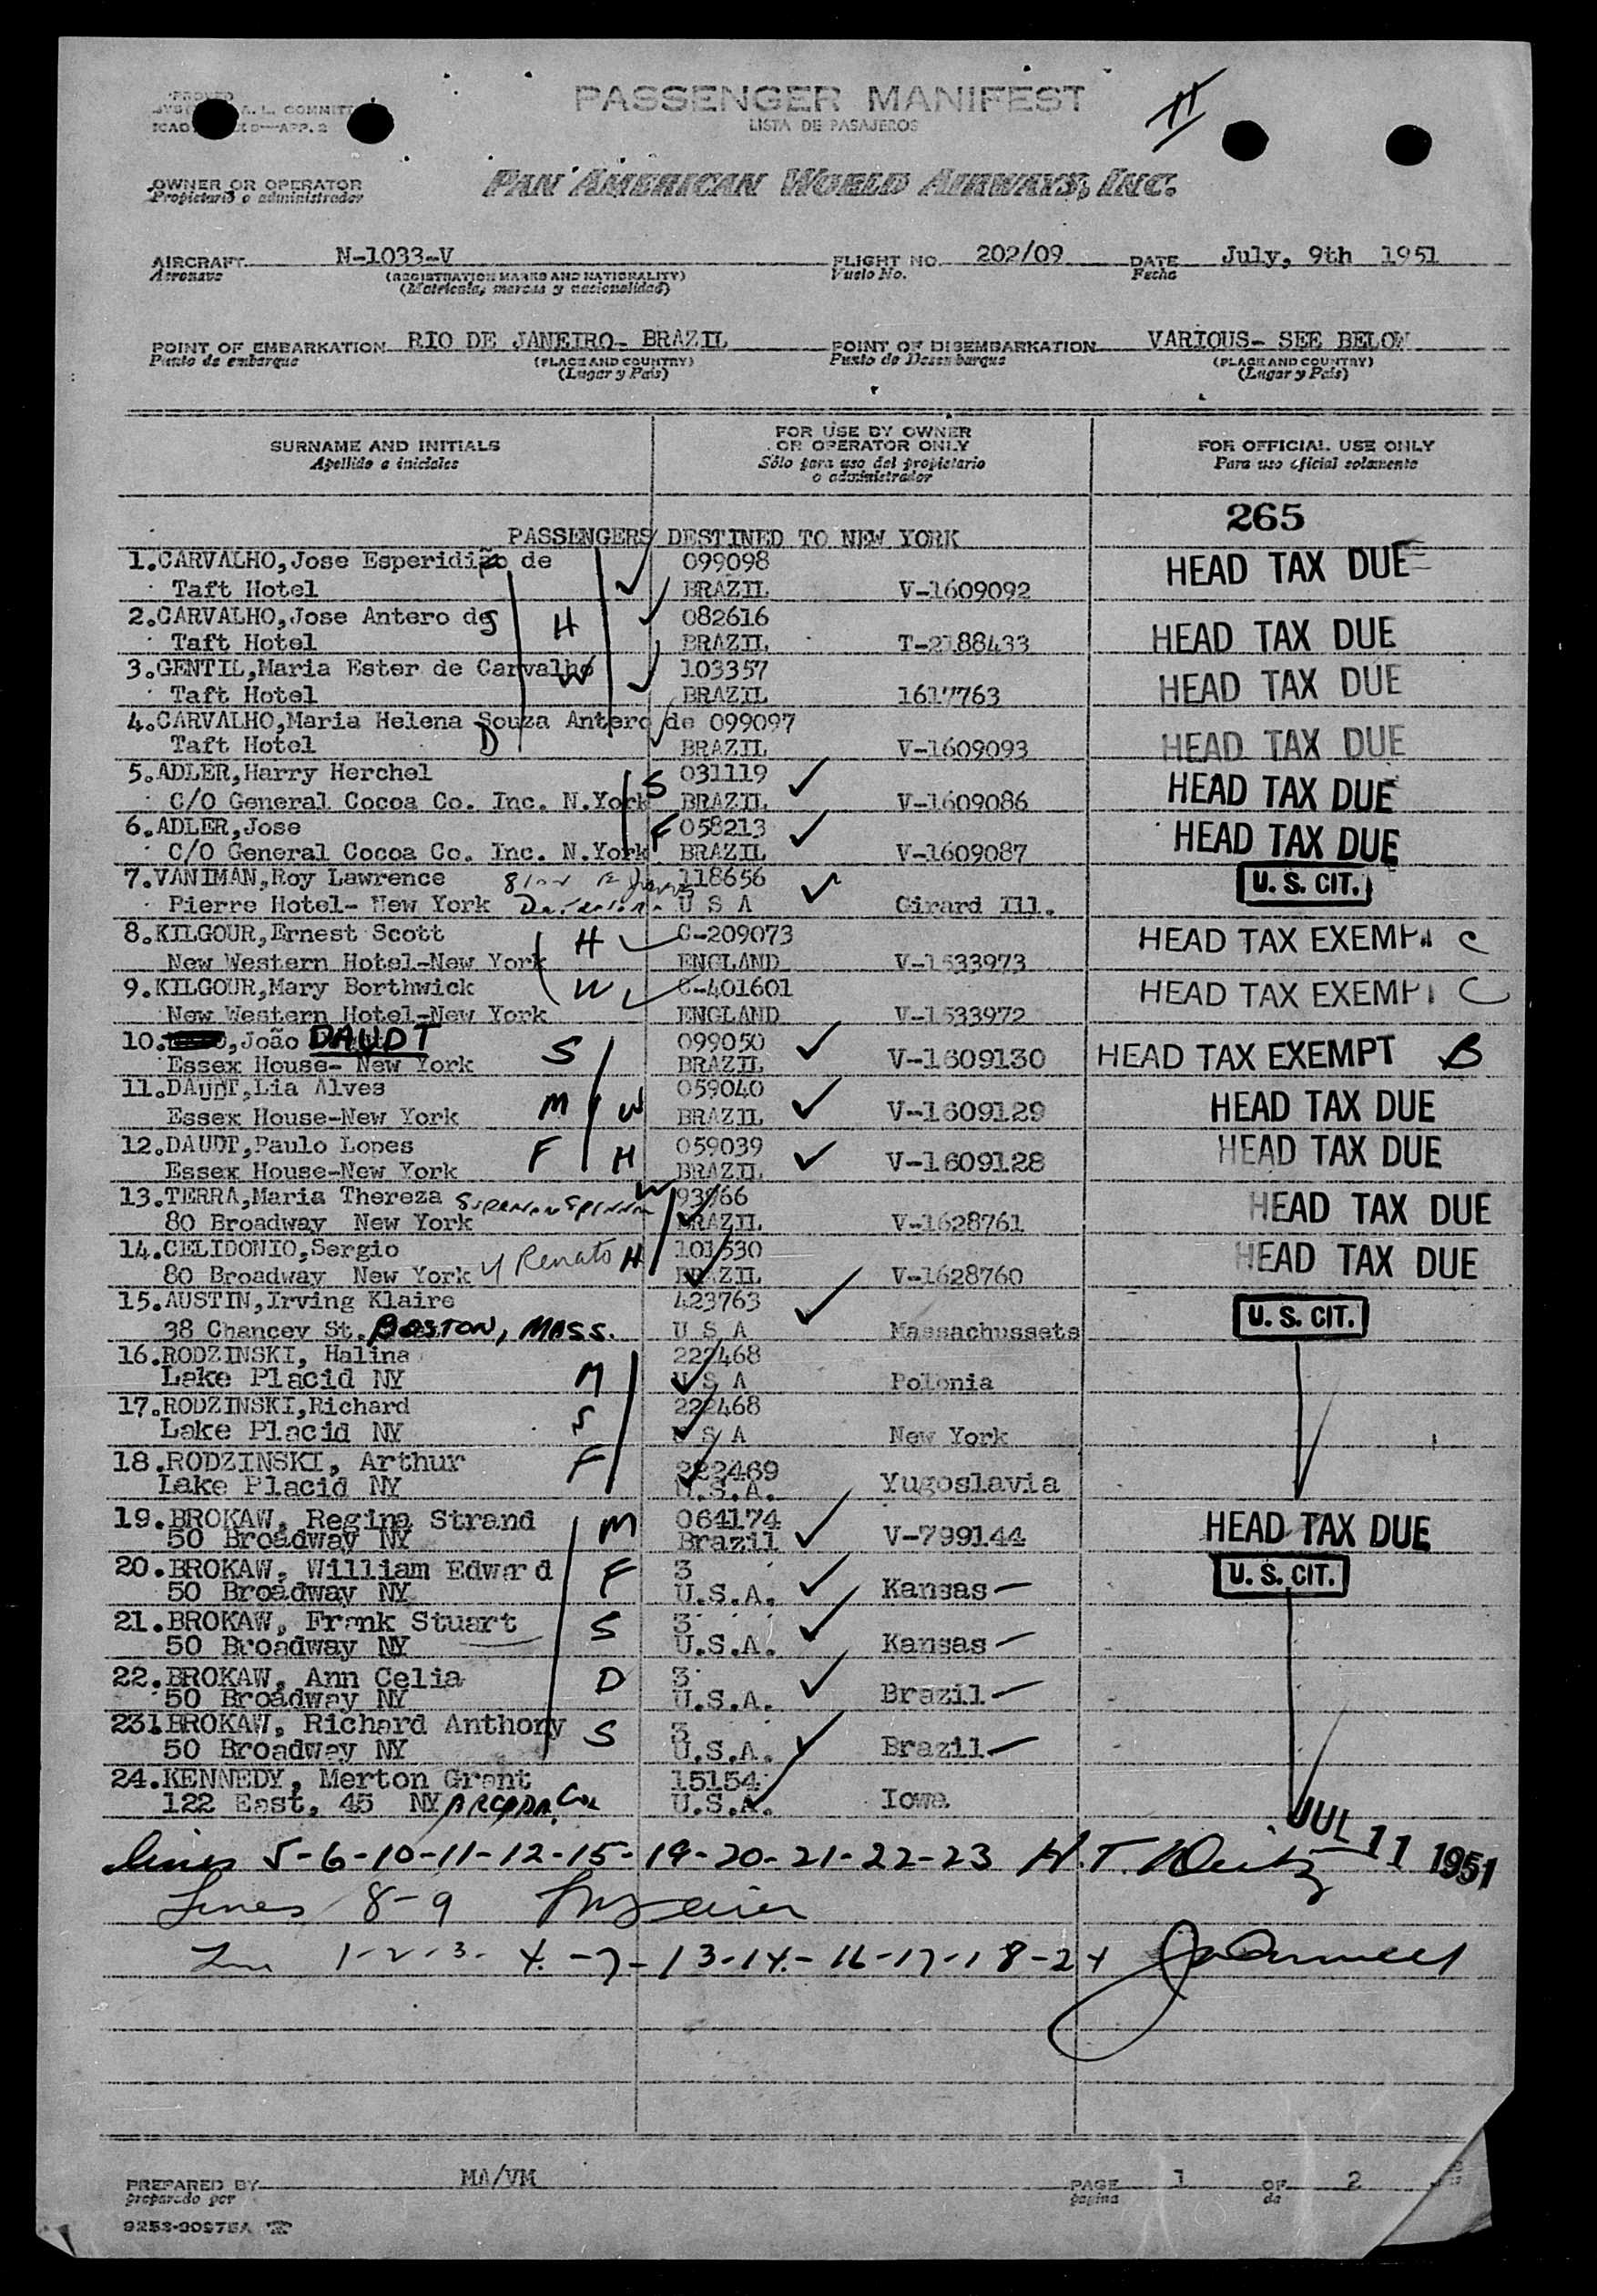 PASSENGER MANIFEST
LISTA DE PASAJEROS
11
OWNER OR OPERATOR
Propietario o administrador
PAN AMERICAN WORLD AIRWAYS, INC.
AIRCRAFT N-1033-V FLIGHT NO. 202/09 DATE July, 9th 1951
Aeronave (REGISTRATION MARKS AND NATIONALITY) Vuelo No. Fecha
(Matricula, marcas y nacionalidad)
POINT OF EMBARKATION RIO DE JANEIRO- BRAZIL POINT OF DISEMBARKATION VARIOUS- SEE BELOW
Punto de embarque (PLACE AND COUNTRY) Punto de Desembarque (PLACE AND COUNTRY)
(Lugar y Pais) (Lugar y Pais)
SURNAME AND INITIALS FOR USE BY OWNER OR OPERATOR ONLY FOR OFFICIAL USE ONLY
Apellido e iniciales Sólo para uso del propietario o administrador Para uso oficial solamente
265
PASSENGERS DESTINED TO NEW YORK
1.CARVALHO,Jose Esperidião de 099098 HEAD TAX DUE
Taft Hotel BRAZIL V-1609092
2.CARVALHO,Jose Antero de S H 082616 HEAD TAX DUE
Taft Hotel BRAZIL T-2188433
3.GENTIL,Maria Ester de Carvalho W 103357 HEAD TAX DUE
Taft Hotel BRAZIL 1617763
4.CARVALHO,Maria Helena Souza Antero de 099097
Taft Hotel D BRAZIL V-1609093 HEAD TAX DUE
5.ADLER,Harry Herchel S 031119 HEAD TAX DUE
C/O General Cocoa Co. Inc. N.York BRAZIL V-1609086
6.ADLER,Jose F 058213 HEAD TAX DUE
C/O General Cocoa Co. Inc. N.York BRAZIL V-1609087
7.VANIMAN,Roy Lawrence 118656 U. S. CIT.
Pierre Hotel- New York U S A Girard Ill.
8.KILGOUR,Ernest Scott H C-209073 HEAD TAX EXEMPT C
New Western Hotel-New York ENGLAND V-1533973
9.KILGOUR,Mary Borthwick W C-401601 HEAD TAX EXEMPT C
New Western Hotel-New York ENGLAND V-1533972
10. ,João DAUDT S 099050 HEAD TAX EXEMPT B
Essex House- New York BRAZIL V-1609130
11.DAUDT,Lia Alves M W 059040 HEAD TAX DUE
Essex House-New York BRAZIL V-1609129
12.DAUDT,Paulo Lopes F H 059039 HEAD TAX DUE
Essex House-New York BRAZIL V-1609128
13.TERRA,Maria Thereza W 93966 HEAD TAX DUE
80 Broadway New York BRAZIL V-1628761
14.CELIDONIO,Sergio Renato H 101530 HEAD TAX DUE
80 Broadway New York BRAZIL V-1628760
15.AUSTIN,Irving Klaire 423763 U. S. CIT.
38 Chancey St. BOSTON, MASS. U S A Massachussets
16.RODZINSKI, Halina 222468
Lake Placid NY M U S A Polonia
17.RODZINSKI,Richard S 222468
Lake Placid NY U S A New York
18.RODZINSKI, Arthur F 222469
Lake Placid NY U.S.A. Yugoslavia
19.BROKAW, Regina Strand M 064174 HEAD TAX DUE
50 Broadway NY Brazil V-799144
20.BROKAW, William Edward F 3 U. S. CIT.
50 Broadway NY U.S.A. Kansas
21.BROKAW, Frank Stuart S 3
50 Broadway NY U.S.A. Kansas
22.BROKAW, Ann Celia D 3
50 Broadway NY U.S.A. Brazil
23.BROKAW, Richard Anthony S 3
50 Broadway NY U.S.A. Brazil
24.KENNEDY, Merton Grant 15154
122 East, 45 NY U.S.A. Iowa
JUL 11 1951
Lines 5-6-10-11-12-15-19-20-21-22-23 H.T.
Lines 8-9
1-2-3-4-7-13-14-16-17-18-24
PREPARED BY MA/VM PAGE 1 OF 2
preparado por pagina de